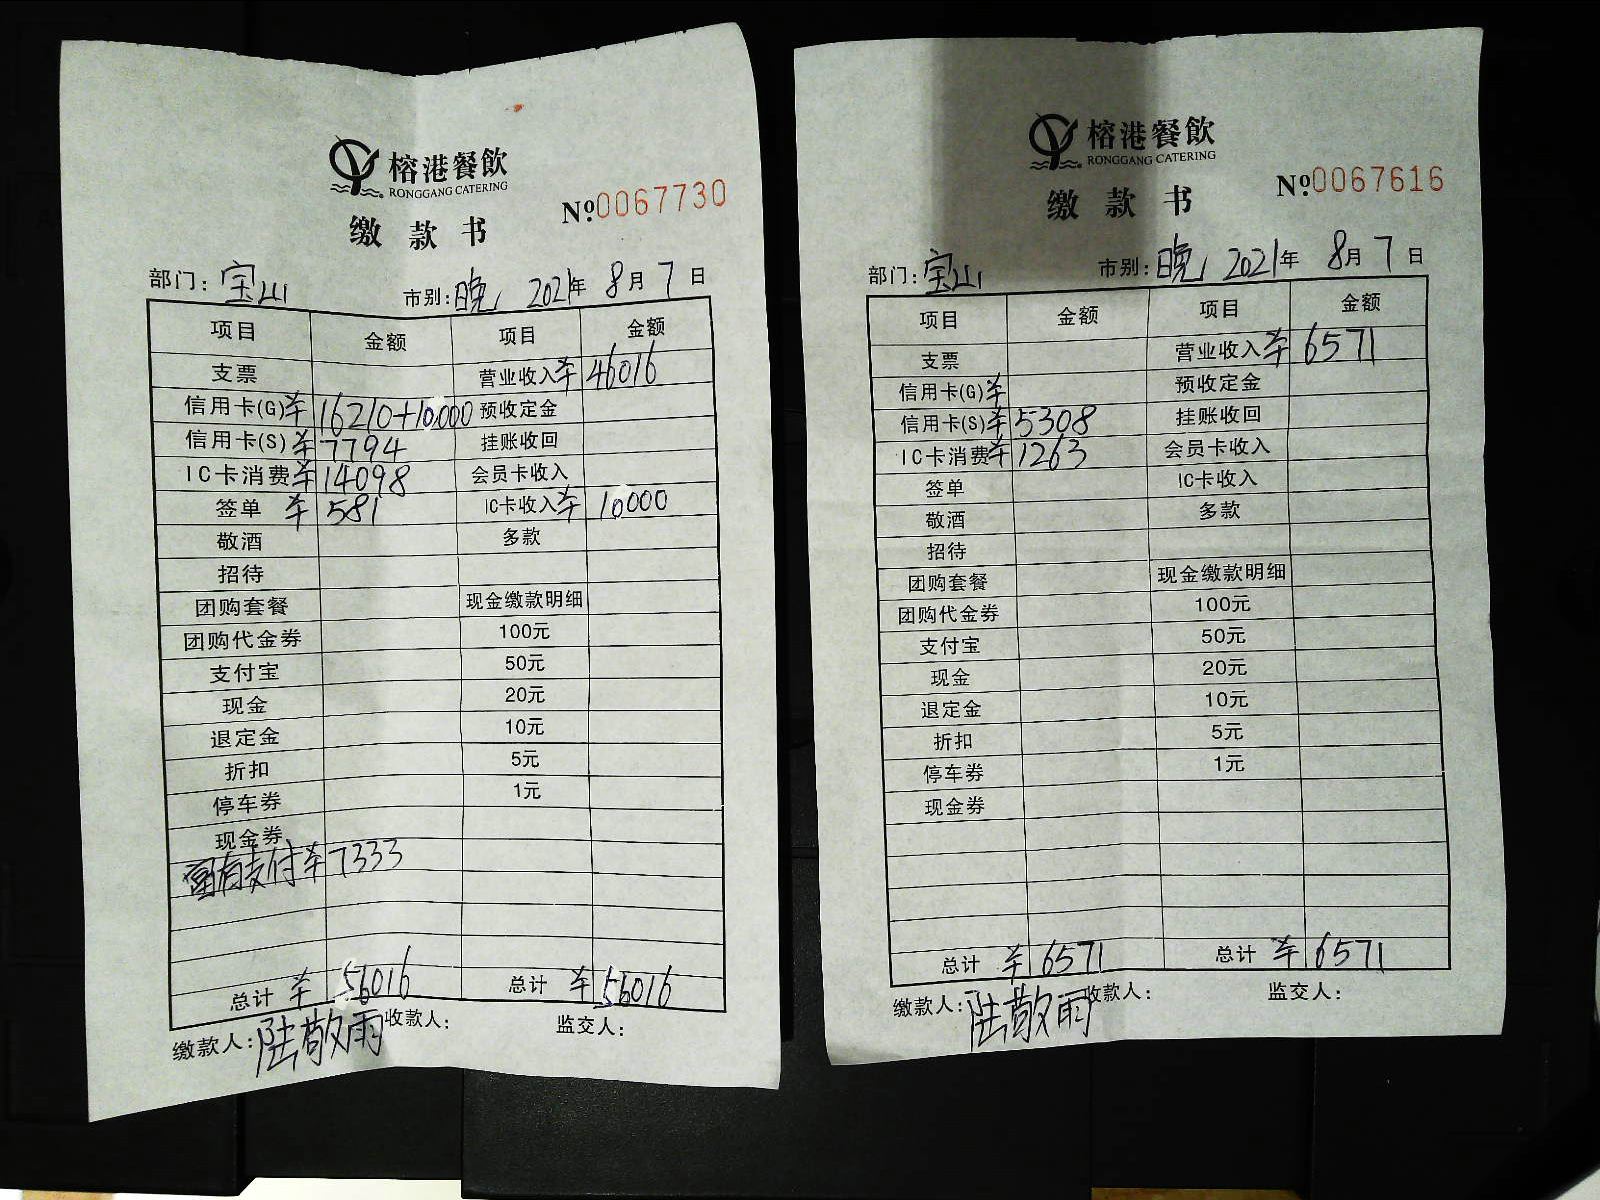 榕港餐飲
RONGGANG CATERING
缴款书
Nº:0067730
部门:宝山 市别:晚 2021年 8月 7日
项目 金额 项目 金额
支票 营业收入 ¥ 46016
信用卡(G) ¥ 16210+10000 预收定金
信用卡(S) ¥ 7794 挂账收回
IC卡消费 ¥ 14098 会员卡收入
签单 ¥ 581 IC卡收入 ¥ 10000
敬酒 多款
招待
团购套餐 现金缴款明细
团购代金券 100元
支付宝 50元
现金 20元
退定金 10元
折扣 5元
停车券 1元
现金券
支付 ¥ 7333
总计 ¥ 56016 总计 ¥ 56016
缴款人:陆敬雨 收款人: 监交人:
榕港餐飲
RONGGANG CATERING
缴款书
Nº:0067616
部门:宝山 市别:晚 2021年 8月 7日
项目 金额 项目 金额
支票 营业收入 ¥ 6571
信用卡(G) ¥ 预收定金
信用卡(S) ¥ 5308 挂账收回
IC卡消费 ¥ 1263 会员卡收入
签单 IC卡收入
敬酒 多款
招待
团购套餐 现金缴款明细
团购代金券 100元
支付宝 50元
现金 20元
退定金 10元
折扣 5元
停车券 1元
现金券
总计 ¥ 6571 总计 ¥ 6571
缴款人:陆敬雨 收款人: 监交人: